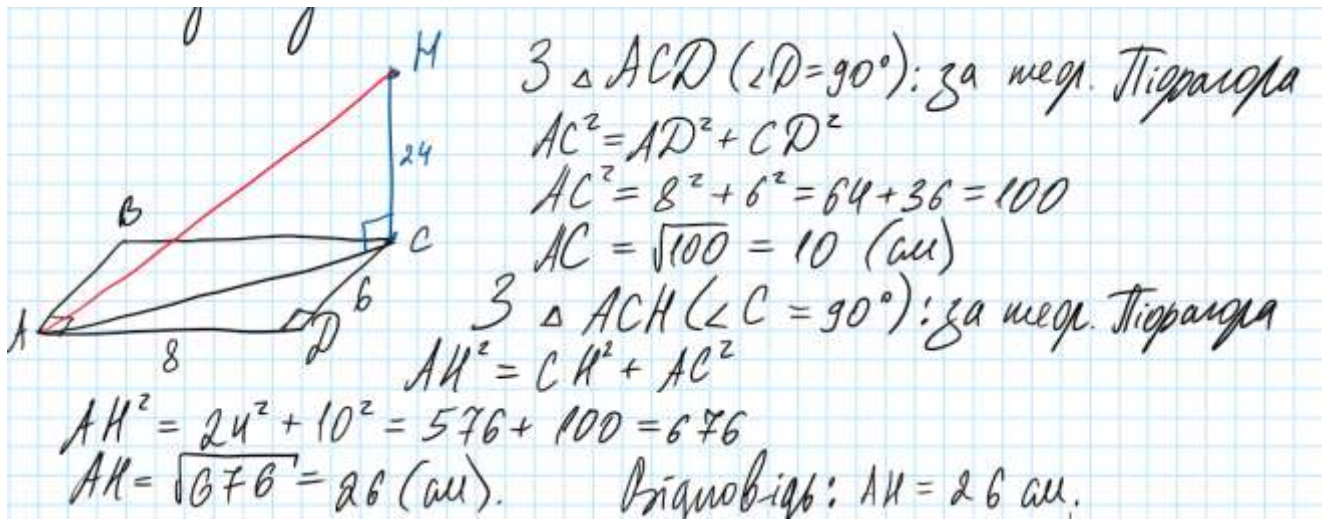 H
24
B
C
6
A
D
8
З △ ACD (∠D=90°): за теор. Піфагора
AC² = AD² + CD²
AC² = 8² + 6² = 64 + 36 = 100
AC = √100 = 10 (см)
З △ ACH (∠C = 90°): за теор. Піфагора
AH² = CH² + AC²
AH² = 24² + 10² = 576 + 100 = 676
AH = √676 = 26 (см).
Відповідь: AH = 26 см.